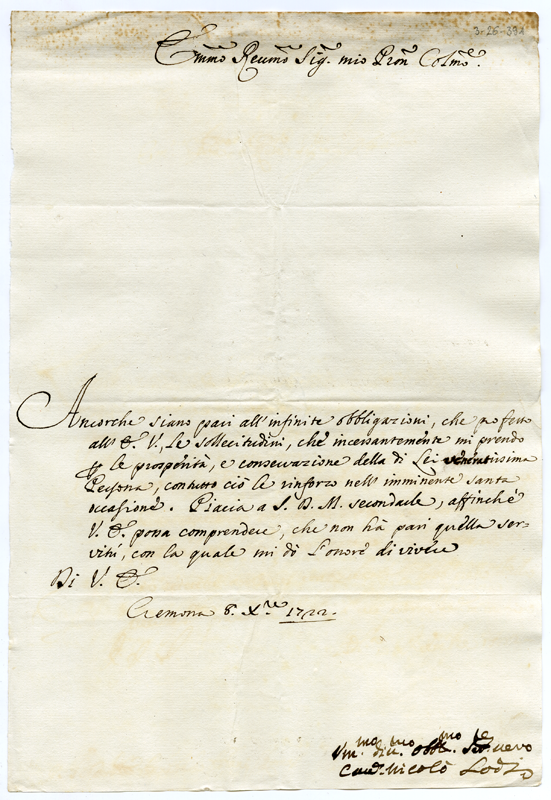 3-25-392
Em̃mo Reumo Sig.r mio Pron Colmo.
Ancorche siano pari all'infinite obbligazioni, che professo
all'E. V., le sollecitudini, che incessantemente mi prendo
per le prosperità, e conservazione della di Lei veneratissima
Persona, contutto ciò le rinforzo nell'imminente santa
occasione. Piacia a S. D. M. secondarle, affinchè
V. E. possa comprendere, che non hà pari quella ser-
vitù, con la quale mi dò l'onore di vivere
Di V. E.
Cremona 8. Xbre 1722.
Um.mo Div.mo Obb.mo Ser.re vero
Nicolò Lodi